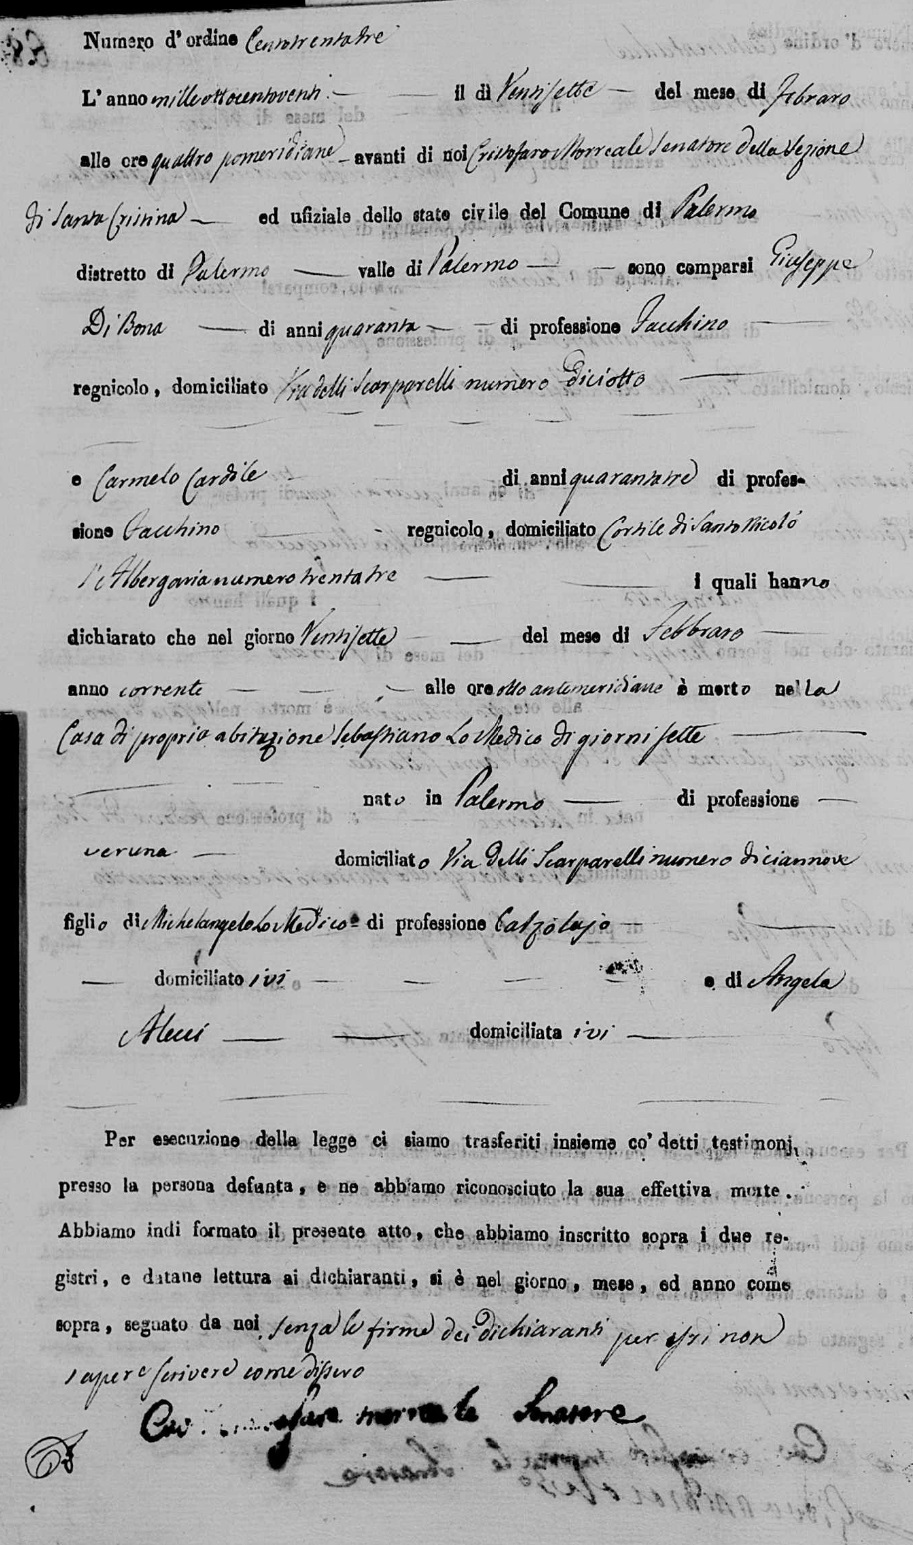 Numero d'ordine Centotrentatre
L'anno mille ottocentoventi il dì Ventisette del mese di Febraro
alle ore quattro pomeridiane avanti di noi Cristofaro Morreale Senatore della Sezione
di Santa Cristina ed ufiziale dello stato civile del Comune di Palermo
distretto di Palermo valle di Palermo sono comparsi Giuseppe
Di Bona di anni quaranta di professione Facchino
regnicolo, domiciliato Via delli Scarparelli numero Diciotto
e Carmelo Cardile di anni quarantatre di profes-
sione Facchino regnicolo, domiciliato Cortile di Santo Nicolò
l'Albergaria numero trentatre i quali hanno
dichiarato che nel giorno Ventisette del mese di Febbraro
anno corrente alle ore otto antemeridiane è morto nella
Casa di propria abitazione Sebastiano Lo Medico di giorni sette
nato in Palermo di professione
veruna domiciliato Via delli Scarparelli numero diciannove
figlio di Michelangelo Lo Medico di professione Calzolajo
domiciliato ivi e di Angela
Alecci domiciliata ivi
Per esecuzione della legge ci siamo trasferiti insieme co' detti testimonj
presso la persona defunta, e ne abbiamo riconosciuto la sua effettiva morte.
Abbiamo indi formato il presente atto, che abbiamo inscritto sopra i due re-
gistri, e datane lettura ai dichiaranti, si è nel giorno, mese, ed anno come
sopra, segnato da noi senza le firme dei Dichiaranti per essi non
sapere scrivere come dissero
morreale Senatore